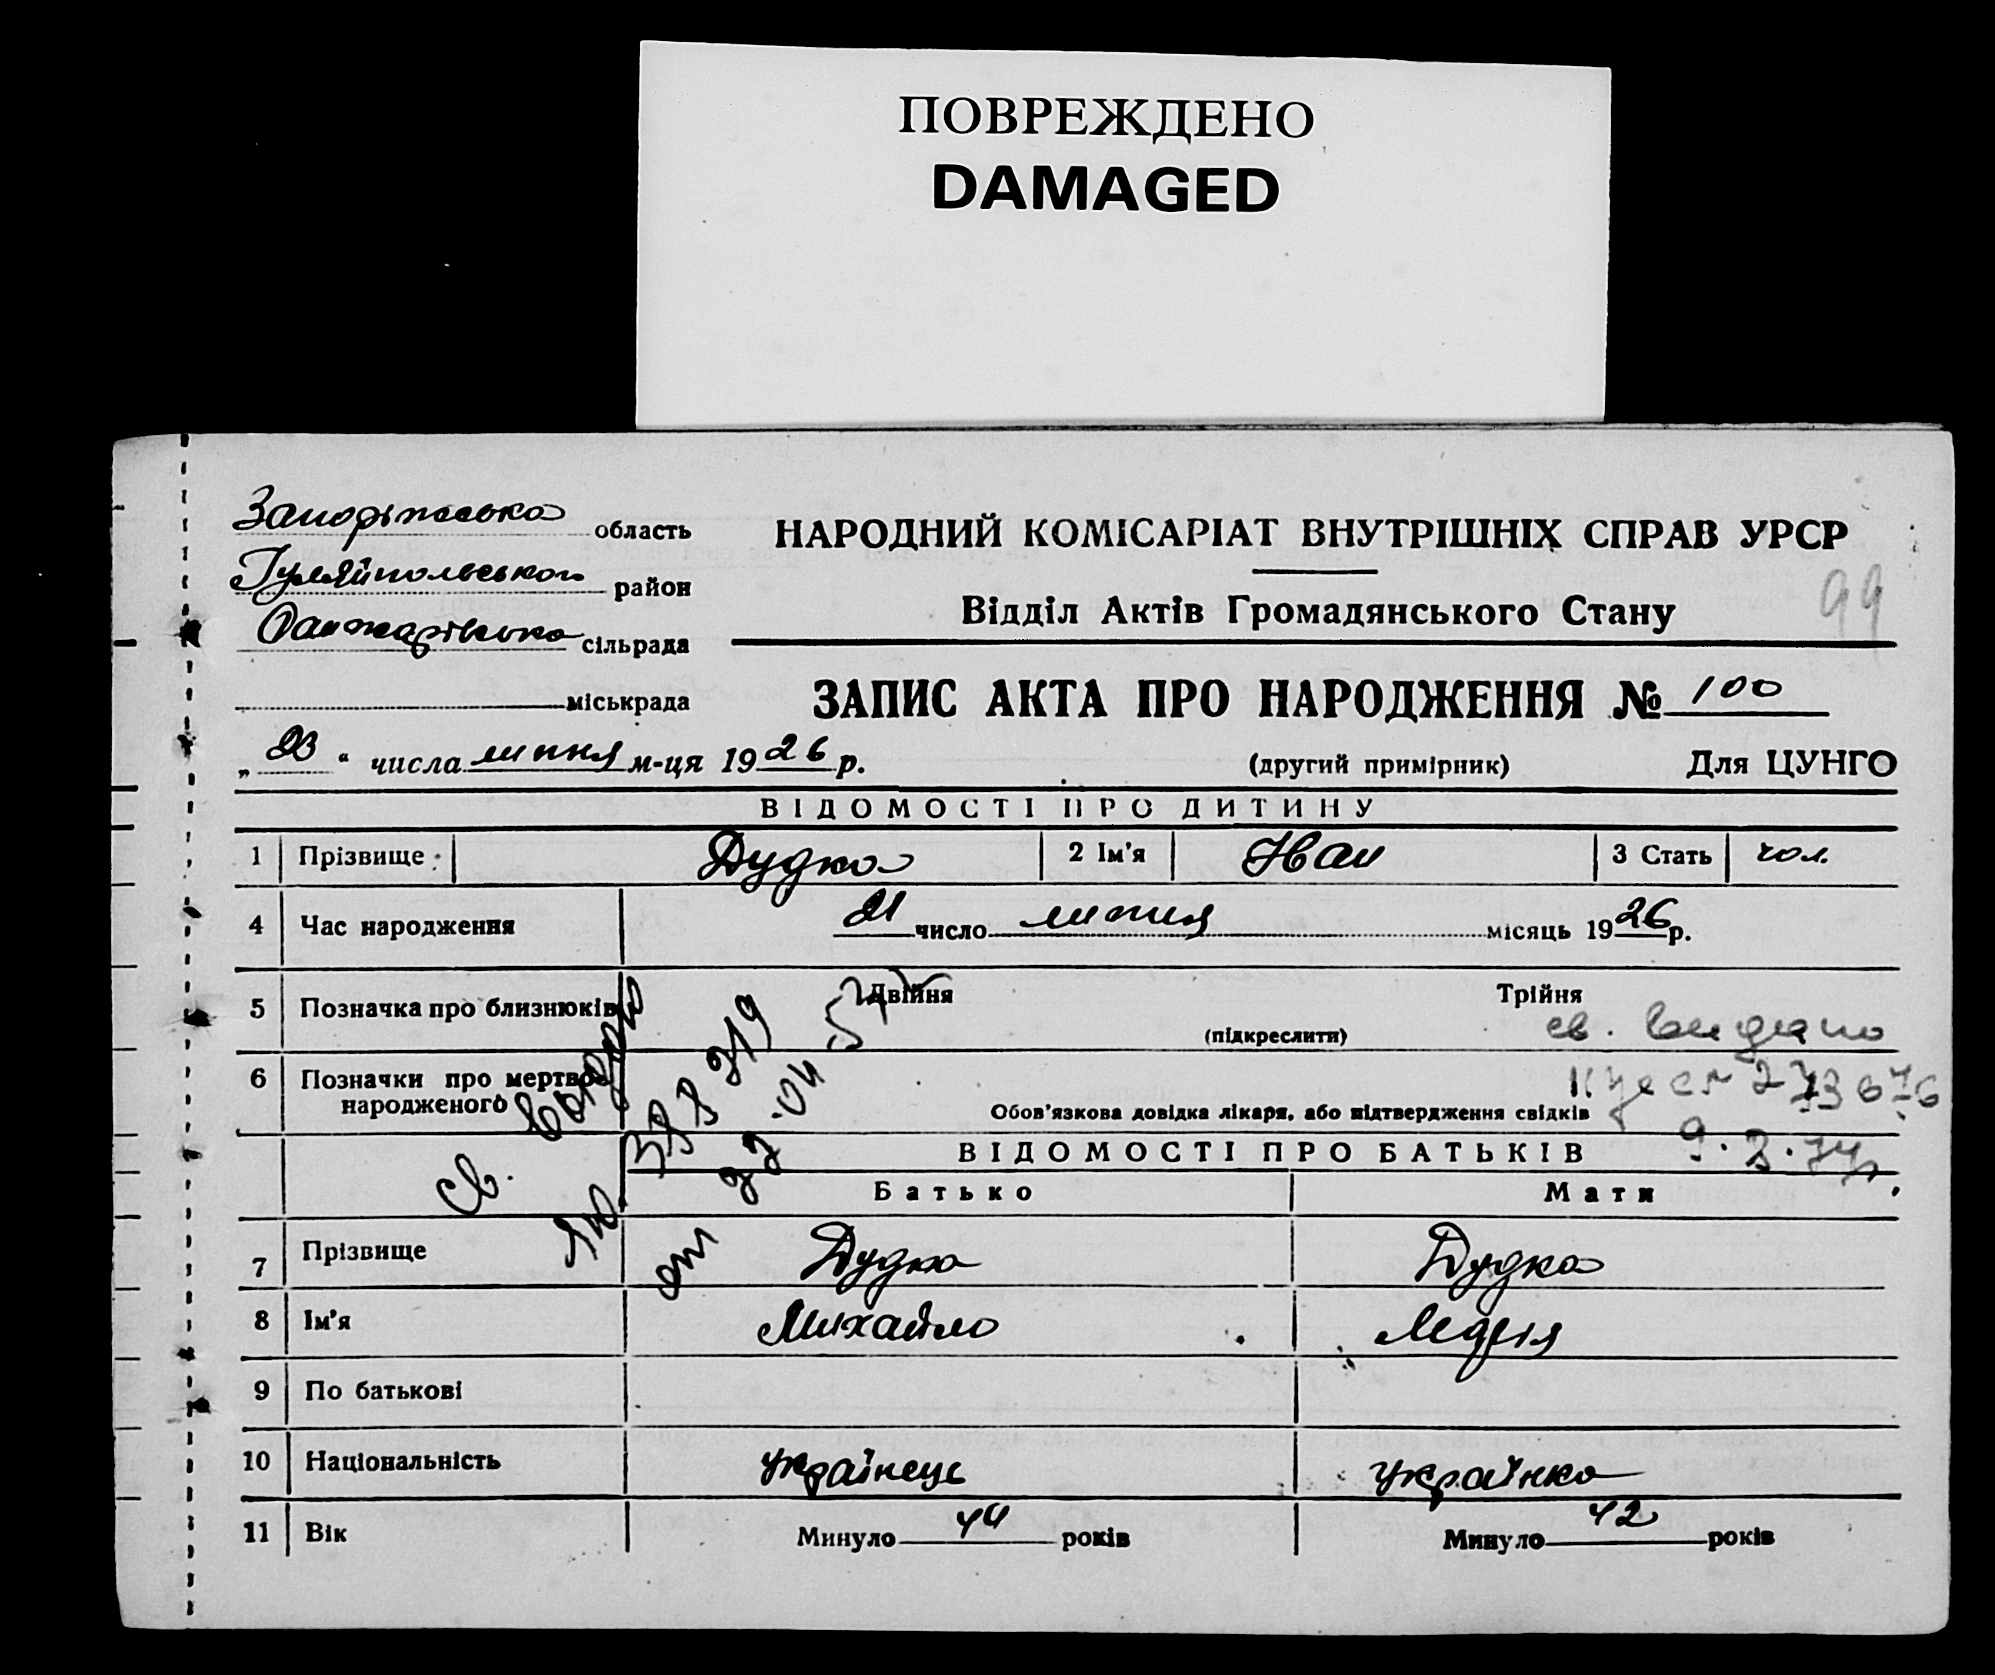 ПОВРЕЖДЕНО
DAMAGED
Запоріжська область
Гуляйпольськой район
сільрада
міськрада
НАРОДНИЙ КОМІСАРІАТ ВНУТРІШНІХ СПРАВ УРСР
Відділ Актів Громадянського Стану
99
ЗАПИС АКТА ПРО НАРОДЖЕННЯ № 100
„23“ числа липня м-ця 1926 р.
(другий примірник) Для ЦУНГО
ВІДОМОСТІ ПРО ДИТИНУ
1 Прізвище Дудка 2 Ім'я Иван 3 Стать чол.
4 Час народження 21 число липня місяць 1926 р.
5 Позначка про близнюків Двійня Трійня
(підкреслити)
св. видано
6 Позначки про мертво-
народженого
Обов'язкова довідка лікаря, або підтвердження свідків
св. видано
ЯЮ
от
9.3.74
ВІДОМОСТІ ПРО БАТЬКІВ
Батько Мати
7 Прізвище Дудка Дудка
8 Ім'я Михайло
9 По батькові
10 Національність українець українка
11 Вік Минуло 44 років Минуло 42 років